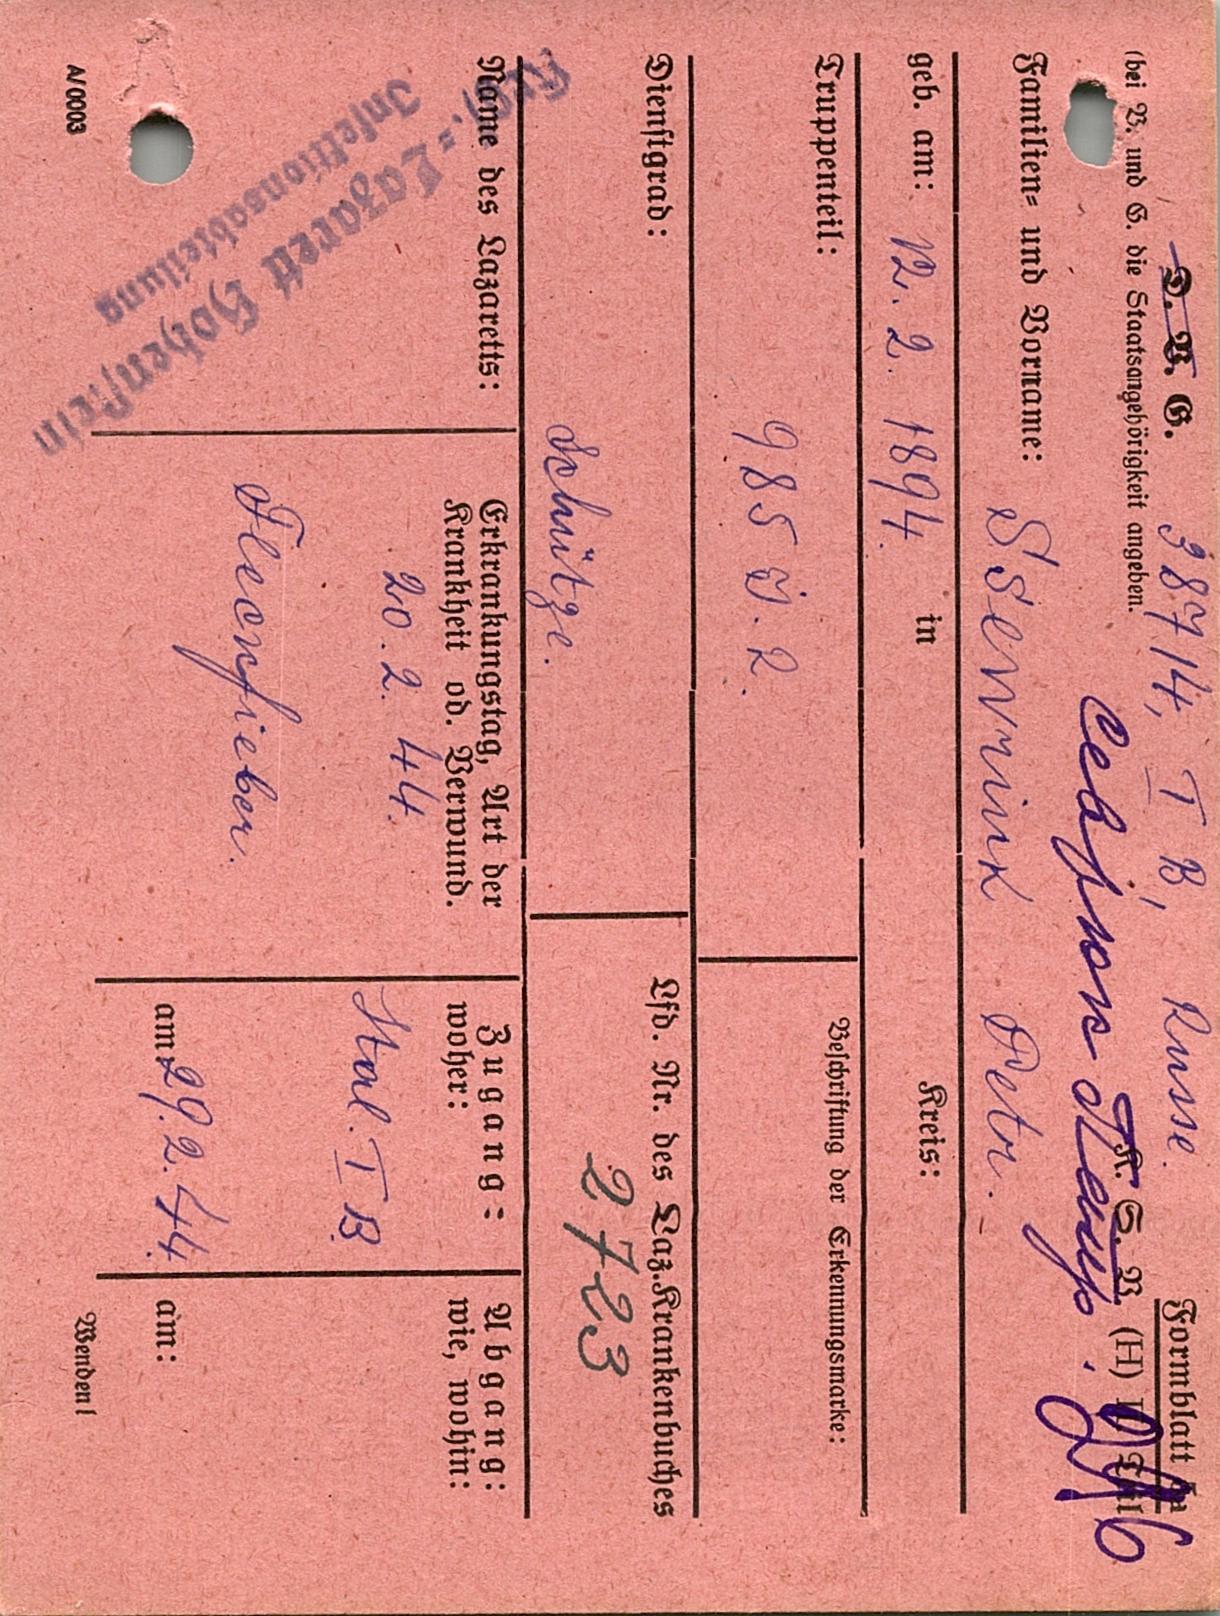 Formblatt
D. V. G. 38714, I B, Russe.
K. S. V (H)
(bei V. und G. die Staatsangehörigkeit angeben.
Familien- und Vorname: Петр.
geb. am: 12. 2. 1894. in Kreis:
Truppenteil: 985 J. 2.
Beschriftung der Erkennungsmarke:
Dienstgrad: Schütze.
Lfd. Nr. des Laz.Krankenbuches
2723
Name des Lazaretts:
Krgf.=Lazarett Hohenstein
Infektionsabteilung
Erkrankungstag, Art der
Krankheit od. Verwund.
20. 2. 44.
Flecnfieber.
Zugang:
woher:
Stal. I B.
am 29. 2. 44.
Abgang:
wie, wohin:
am:
A/0003
Wenden!